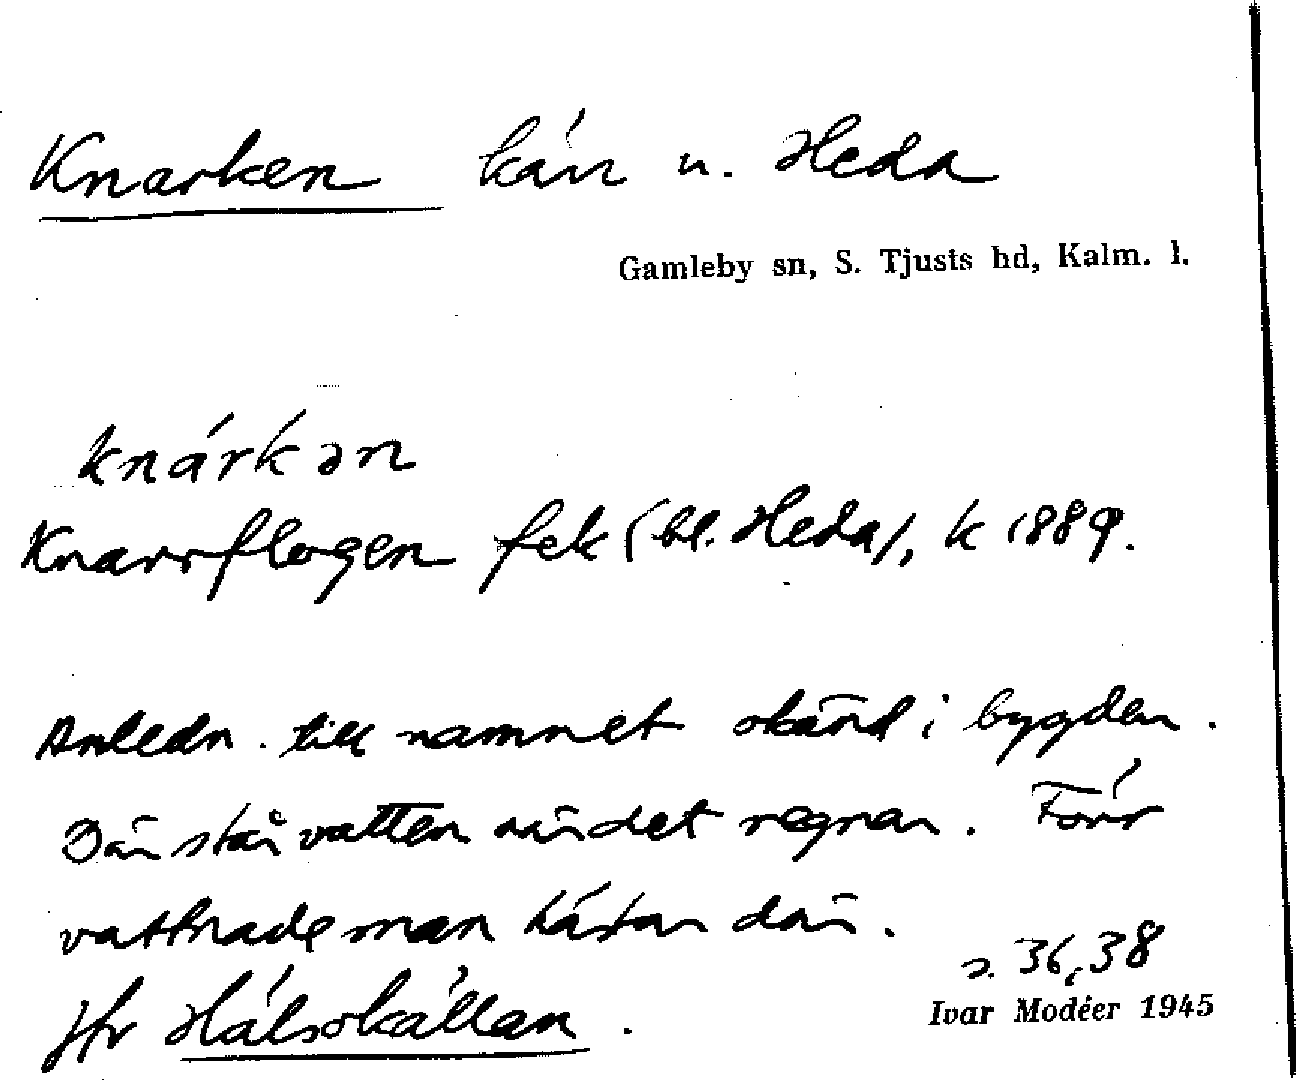 Knarken kärr u. Heda
Gamleby sn, S. Tjusts hd, Kalm. l.
knárkən
Knarrflogen fek (bl. Heda), k 1889.
Anledn. till namnet okänd i bygden.
Där står vatten när det regnar. Förr
vattnade man hästar där.
Jfr Hälsokällan.
s. 36, 38
Ivar Modéer 1945